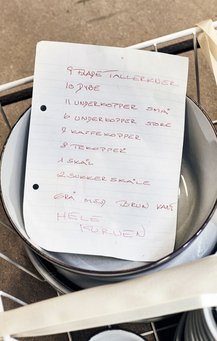 9 FLADE TALLERKNER
10 DYBE
11 UNDERKOPPER SMÅ
6 UNDERKOPPER STORE
9 KAFFEKOPPER
8 TEKOPPER
1 SKÅL
2 SUKKER SKÅLE
GRÅ MED BRUN KANT
HELE
KURVEN